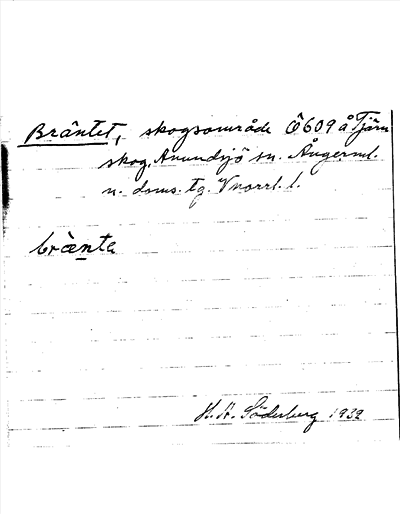 Bräntet, skogsområde Ö609 å Tjärn
skog, Anundsjö sn. Ångerml.
n. doms. tg. Vnorrl. l.
bræ̀nte
H. A. Söderberg 1932